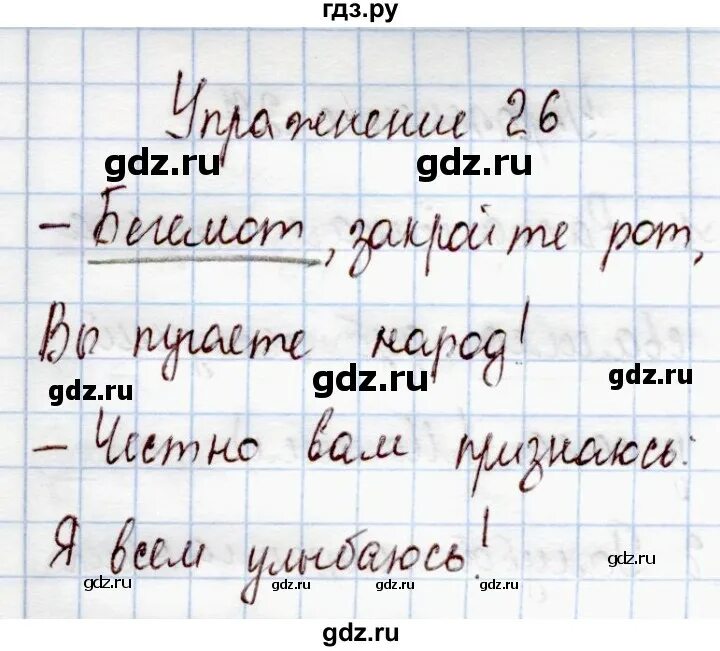 гдз.ру
Упражнение 26
gdz.ru gdz.ru
– Бегемот, закройте рот,
Вы пугаете народ!
gdz.ru gdz.ru gdz.ru
– Честно вам признаюсь:
Я всем улыбаюсь!
gdz.ru gdz.ru gdz.ru gdz.ru
gdz.ru